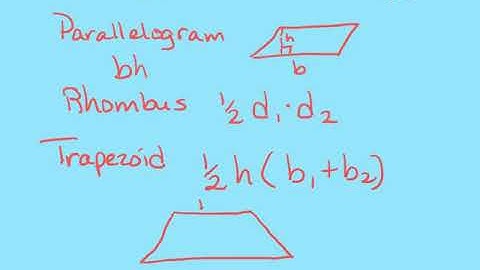 Parallelogram
h
b
bh
Rhombus ½ d₁·d₂
Trapezoid ½ h(b₁+b₂)